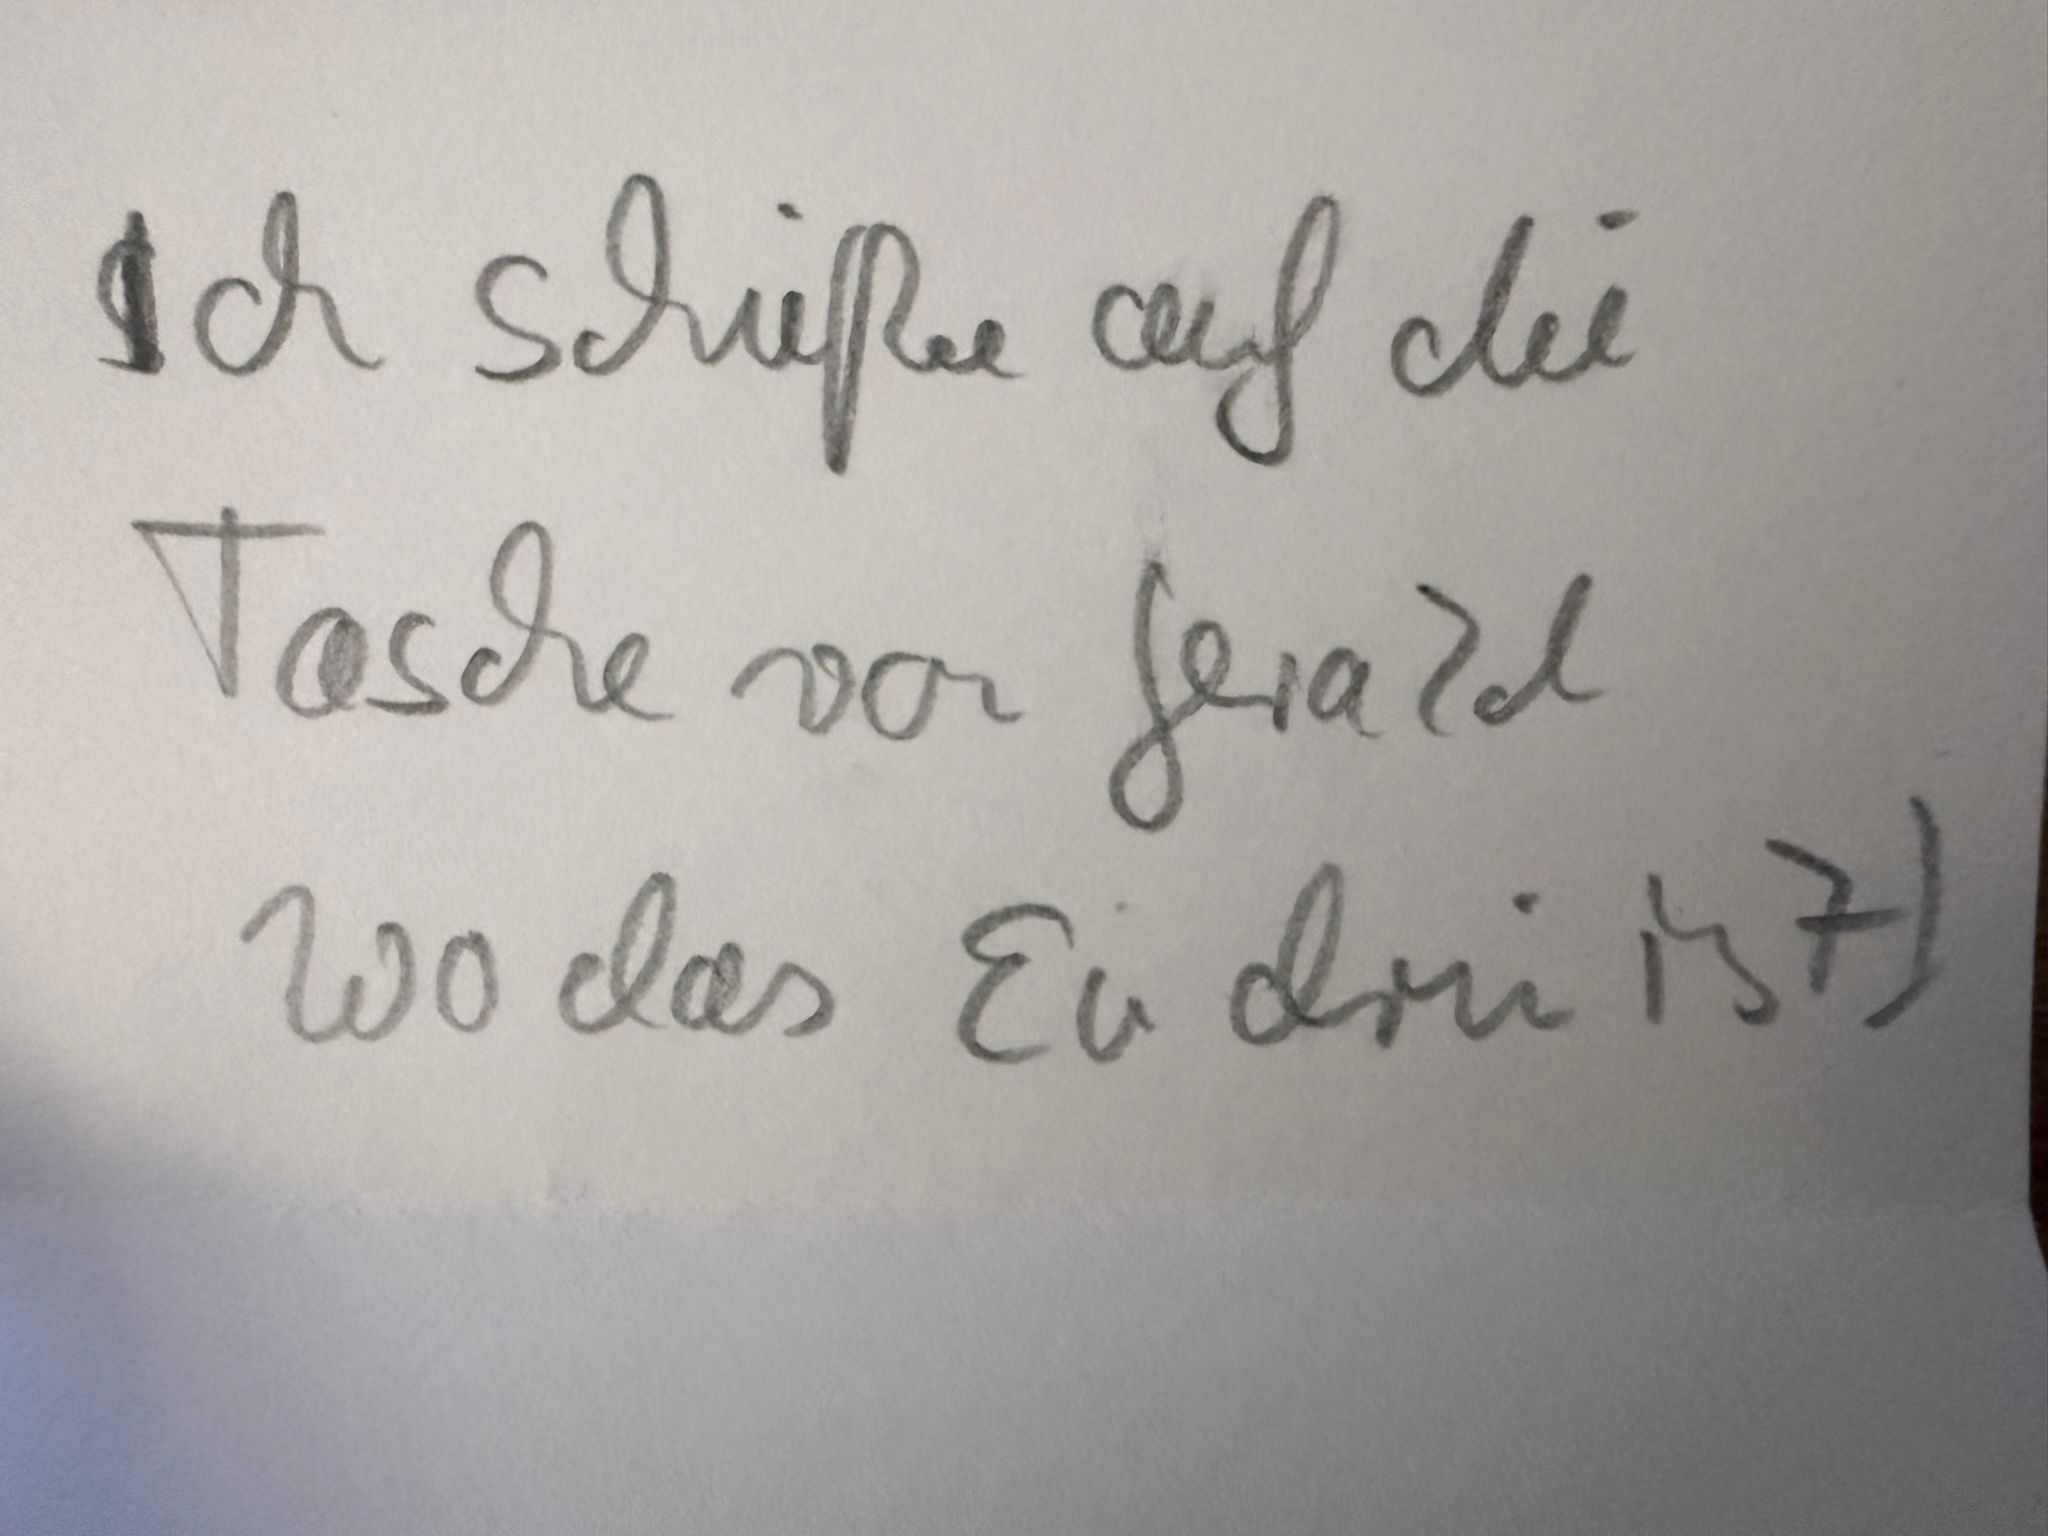 Ich schieße auf die
Tasche von Gerald
wo das Ei drin ist)